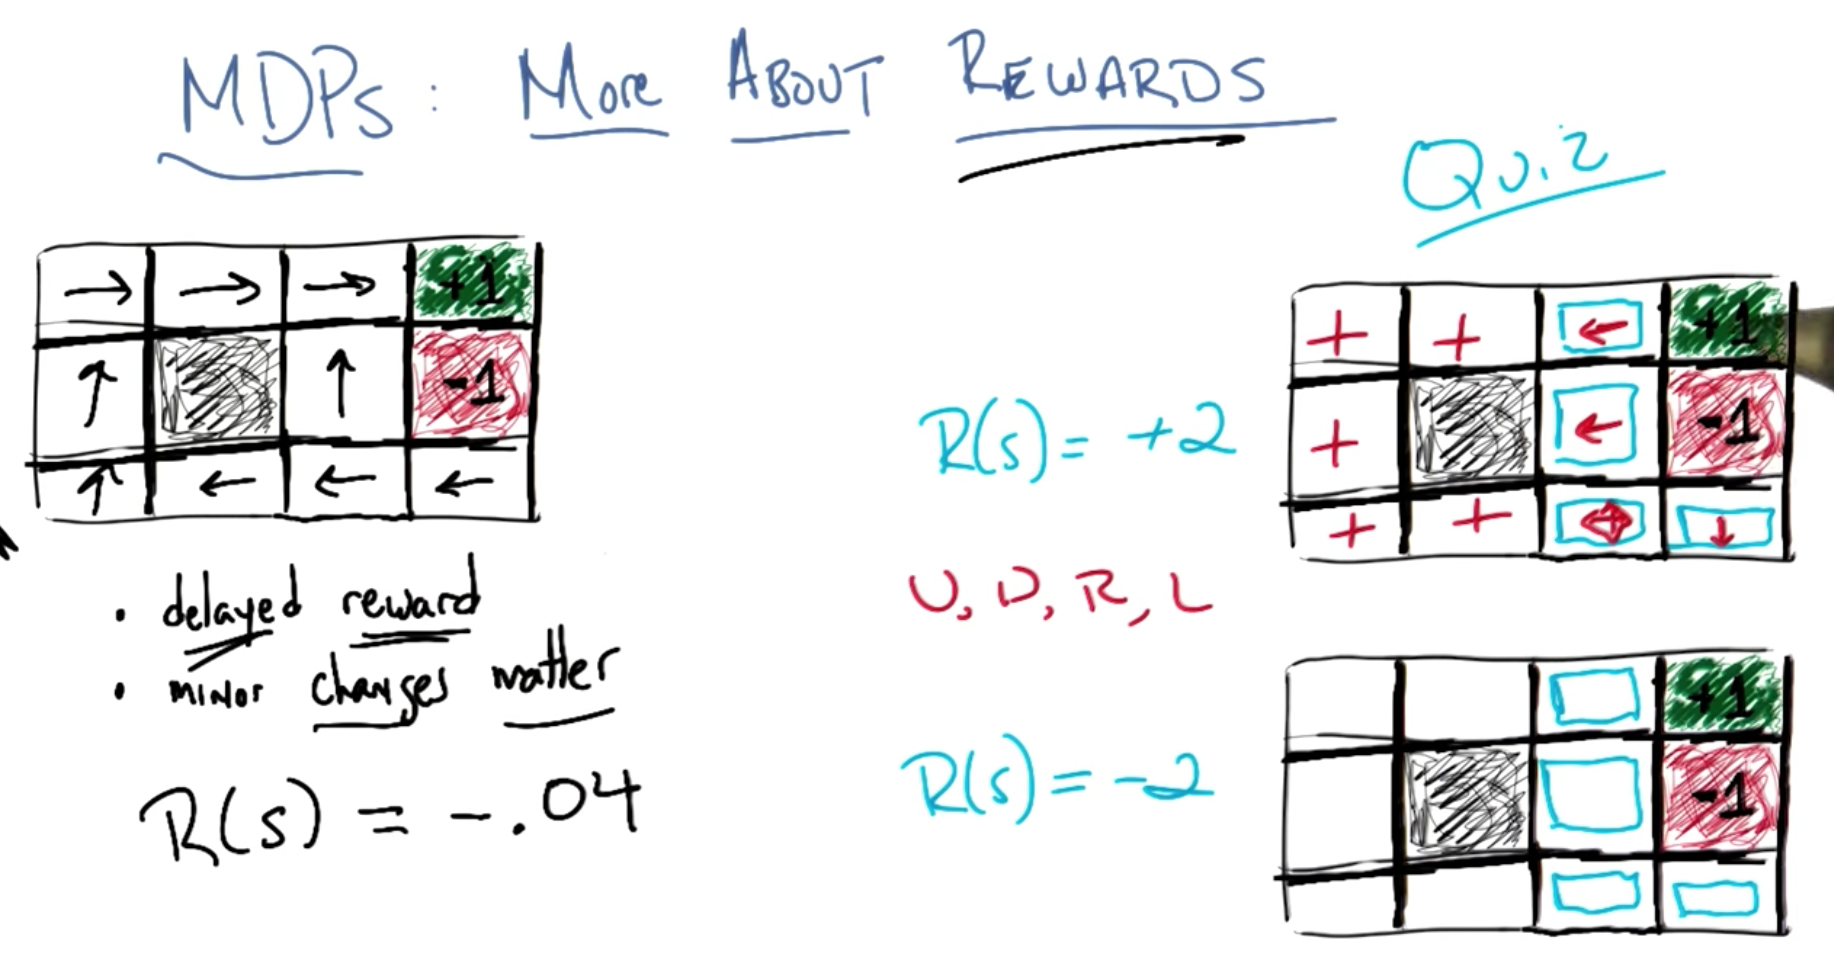 MDPs: More About Rewards
Quiz
→ → → +1
↑ ↑ -1
↑ ← ← ←
• delayed reward
• minor changes matter
R(s) = -.04
R(s) = +2
U, D, R, L
+ + ← +1
+ ← -1
+ + ↓
R(s) = -2
+1
-1